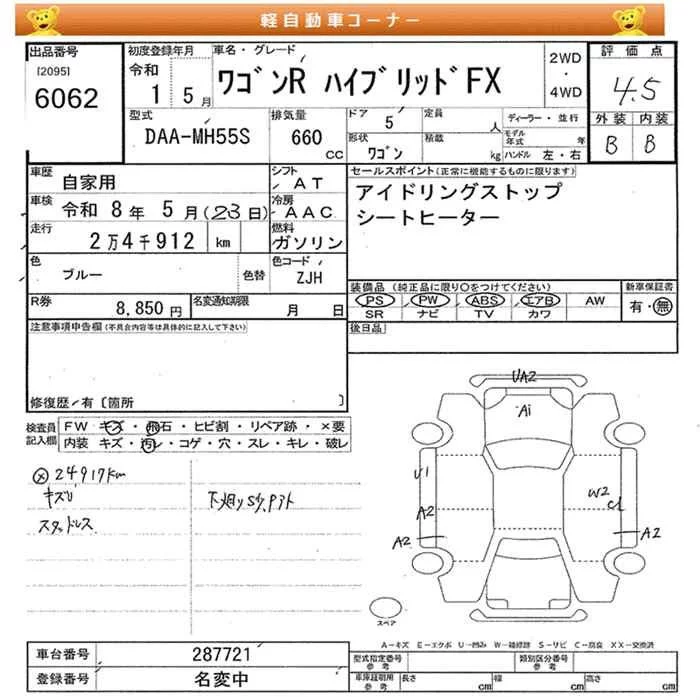 軽自動車コーナー
出品番号 初度登録年月 車名・グレード 評価点
[2095] 令和 2WD
6062 1 5月 ワゴンR ハイブリッドFX ・ 4.5
4WD
型式 排気量 ドア 5 定員 人 ディーラー・並行 外装 内装
DAA-MH55S 660 cc 形状 ワゴン 積載 kg モデル年式 年 B B
ハンドル 左・右
車歴 自家用 シフト AT セールスポイント(正常に機能するものに限ります)
車検 令和 8年 5月(23日) 冷房 AAC アイドリングストップ
走行 2万4千912 km 燃料 ガソリン シートヒーター
色 ブルー 色替 色コード ZJH
装備品(純正品に限り○をつけてください) 新車保証書
R券 8,850円 名変通知期限 月 日 PS PW ABS エアB AW 有・無
SR ナビ TV カワ
注意事項申告欄(不具合内容等は具体的に記入して下さい) 後日品
修復歴/有〔箇所 〕
検査員記入欄 FW キズ・飛石・ヒビ割・リペア跡・×要
内装 キズ・汚レ・コゲ・穴・スレ・キレ・破レ
24917km
キズリ 下廻りSサビ
スタッドレス
UA2
A1
U1
W2
A2
A2 A2
スペア
A-キズ E-エクボ U-凹み W-補修跡 S-サビ C-腐食 XX-交換済
車台番号 287721 型式指定番号 参考 類別区分番号 参考
登録番号 名変中 車庫証明用 参考 長さ cm 幅 cm 高さ cm